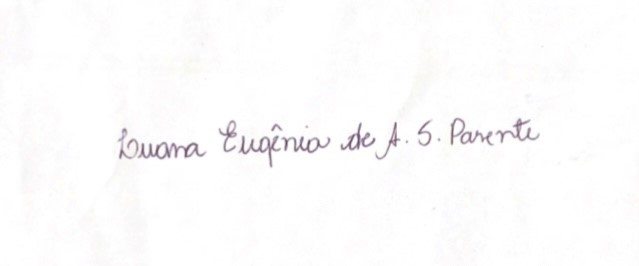 Luana Eugênia de A. S. Parente